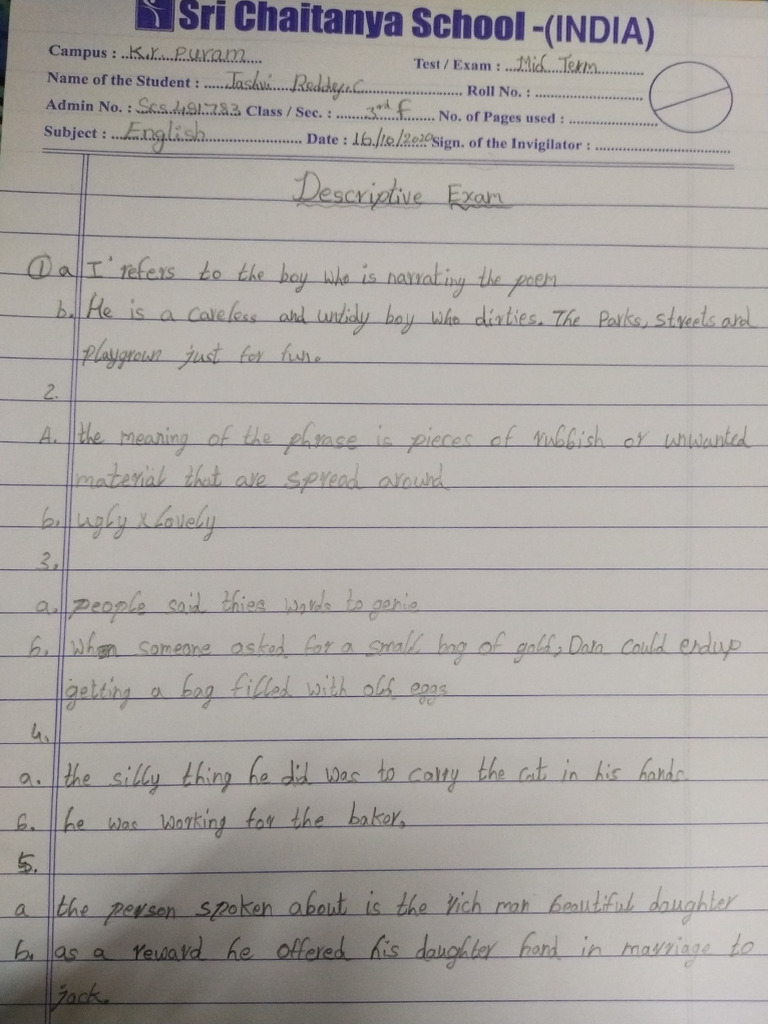 Sri Chaitanya School -(INDIA)
Campus : K.r. puram Test / Exam : Mid Term
Name of the Student : Jashvi Reddy.C Roll No. :
Admin No. : Scs491783 Class / Sec. : 3rd f No. of Pages used :
Subject : English Date : 16/10/2020 Sign. of the Invigilator :
Descriptive Exam
① a I' refers to the boy who is narrating the poem
b. He is a careless and untidy boy who dirties. The Parks, streets and
playgrown just for fun.
2.
A. the meaning of the phrase is pieces of rubbish or unwanted
material that are spread around
b. ugly x lovely
3.
a. people said thies words to genie
b. when someone asked for a small bag of gold, Dara could endup
getting a bag filled with old eggs
4.
a. the silly thing he did was to carry the cat in his hands.
b. he was working for the baker.
5.
a the person spoken about is the rich man beautiful daughter
b. as a reward he offered his daughter hand in marriage to
jack.